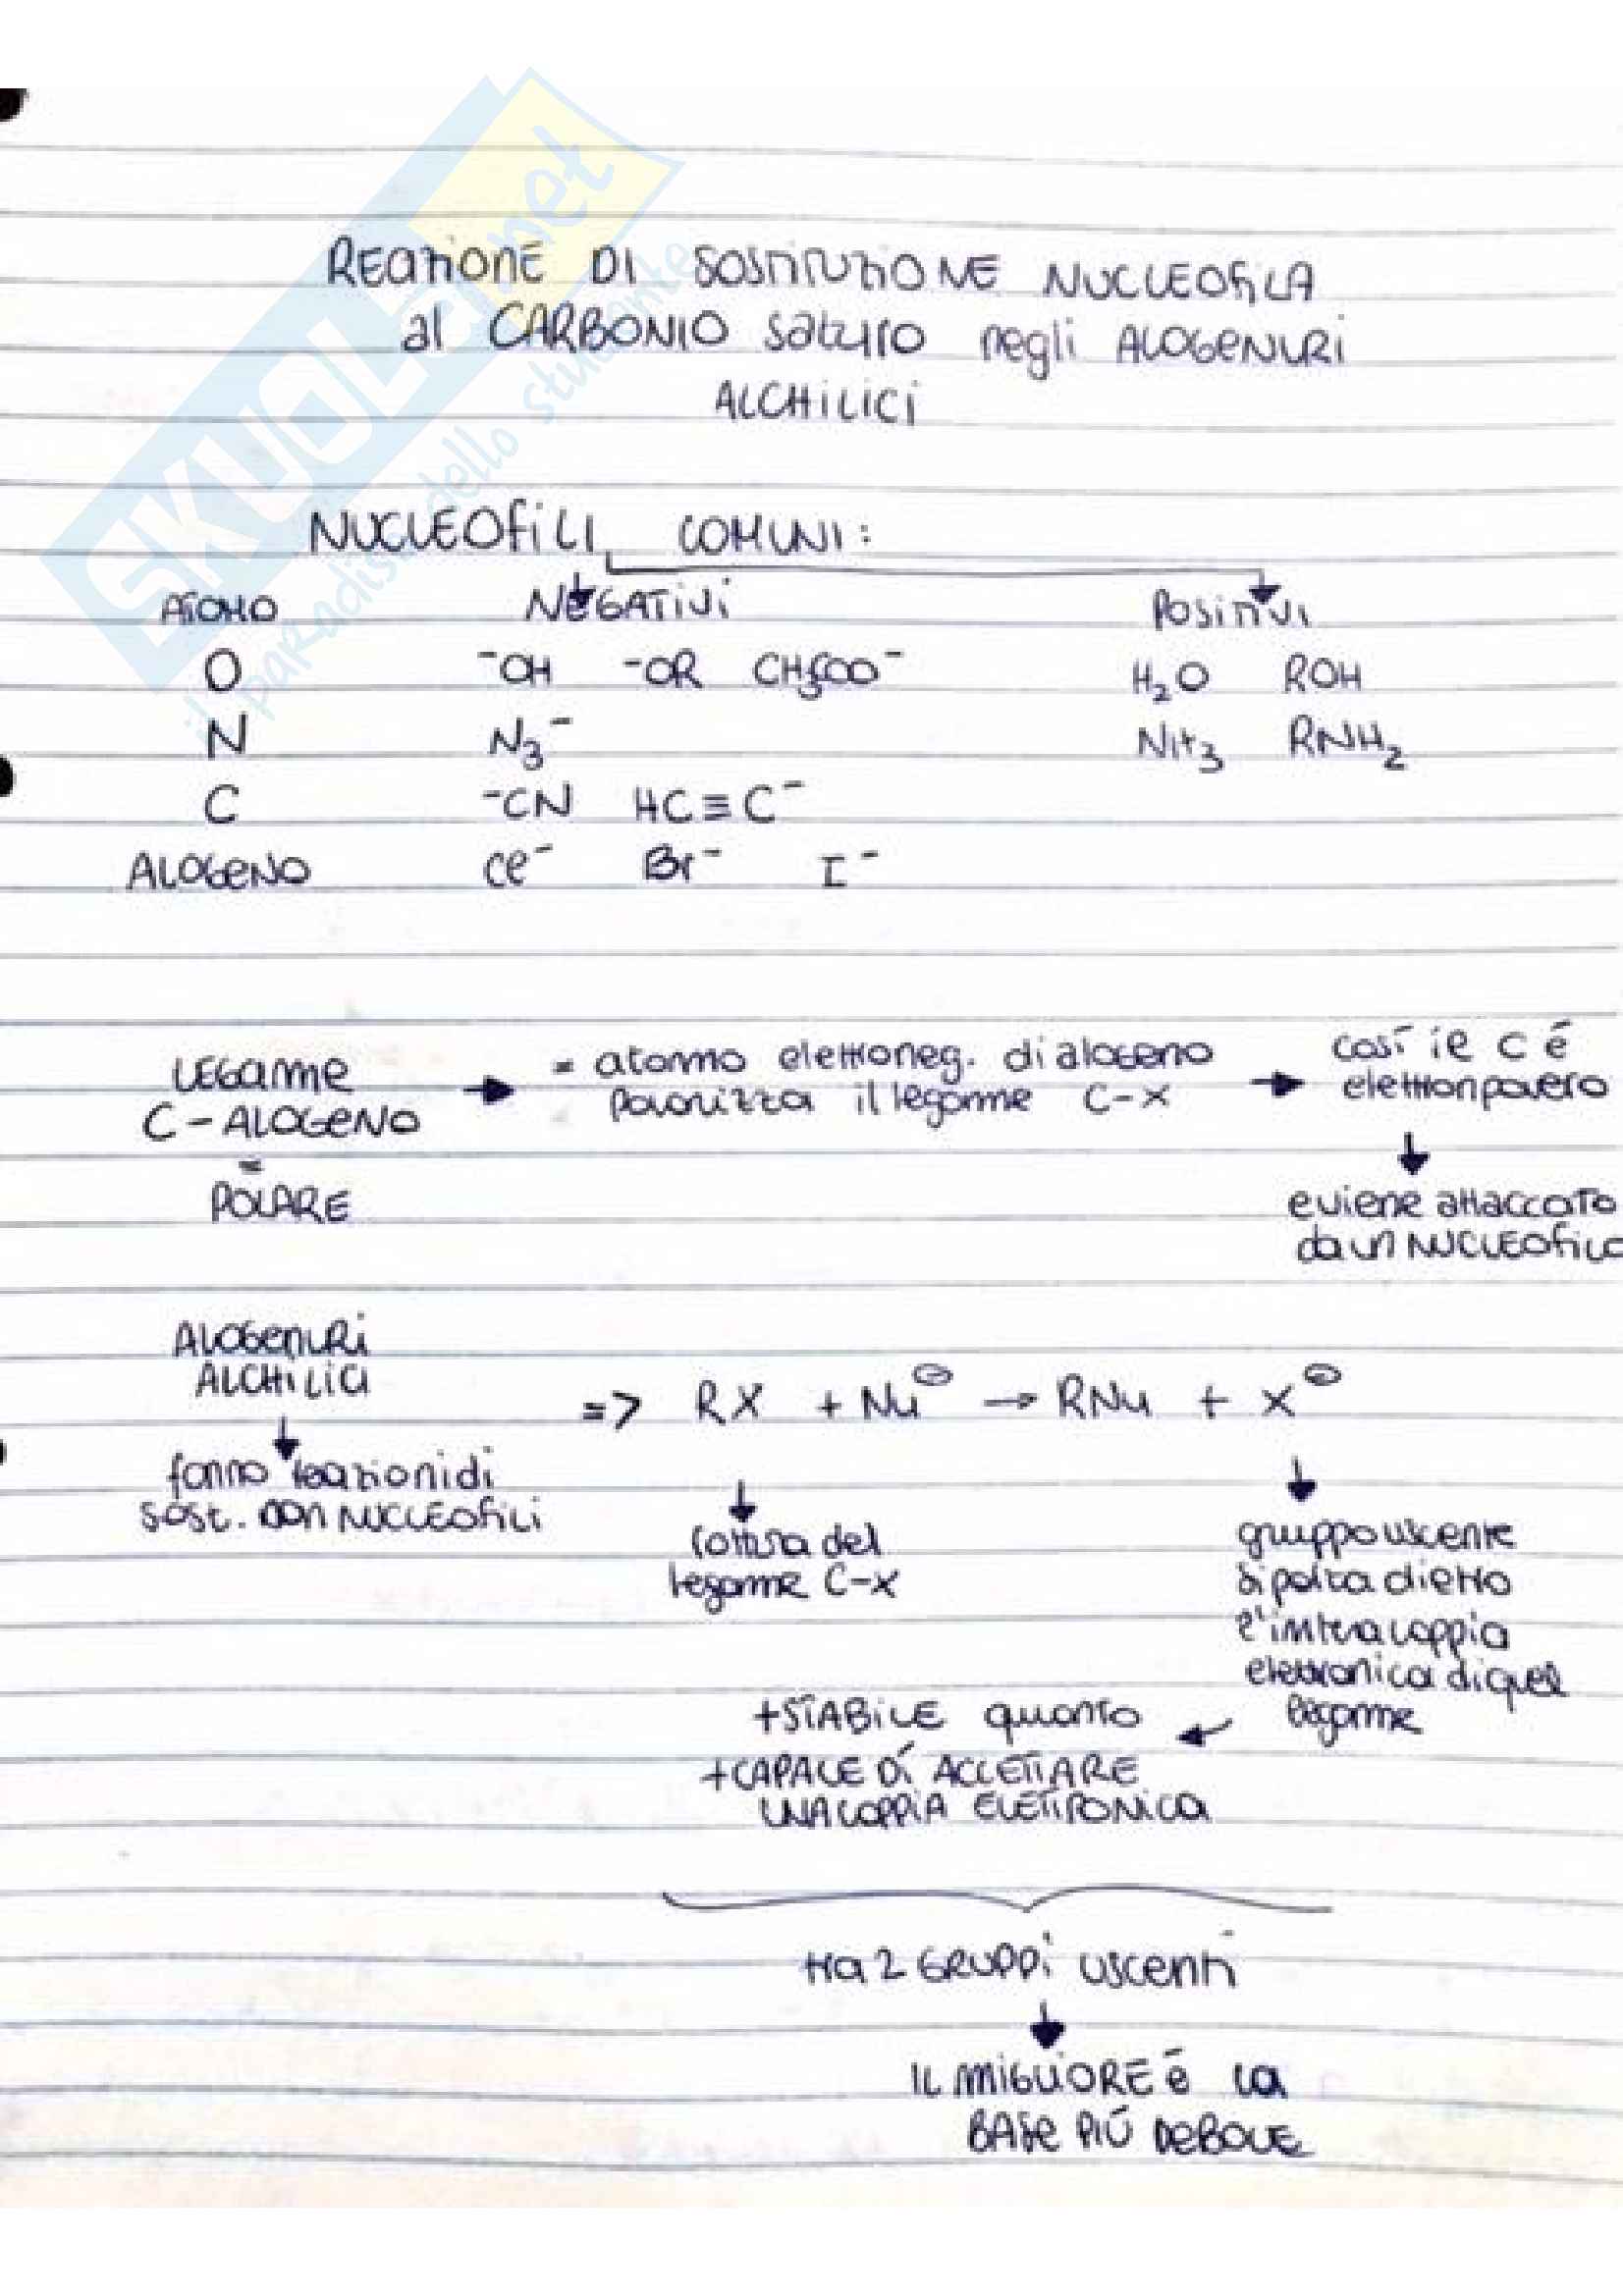 SKUOLA.net
il paradiso dello studente
REAZIONE DI SOSTITUZIONE NUCLEOFILA
al CARBONIO saturo negli ALOGENURI
ALCHILICI
NUCLEOFILI COMUNI:
ATOMO NEGATIVI POSITIVI
O ⁻OH ⁻OR CH₃COO⁻ H₂O ROH
N N₃⁻ NH₃ RNH₂
C ⁻CN HC≡C⁻
ALOGENO Cl⁻ Br⁻ I⁻
LEGAME → = atomo elettroneg. di alogeno → così il C é
C-ALOGENO polarizza il legame C-X elettronpovero
=
POLARE
↓
e viene attaccato
da un NUCLEOFILO
ALOGENURI
ALCHILICI
=> RX + Nu⊖ → RNu + X⊖
↓
fanno reazioni di
sost. con NUCLEOFILI
↓
rottura del
legame C-X
↓
gruppo uscente
si porta dietro
l'intera coppia
elettronica di quel
legame
+STABILE quanto ←
+CAPACE DI ACCETTARE
UNA COPPIA ELETTRONICA
tra 2 GRUPPI uscenti
↓
IL MIGLIORE é la
BASE PIÚ DEBOLE